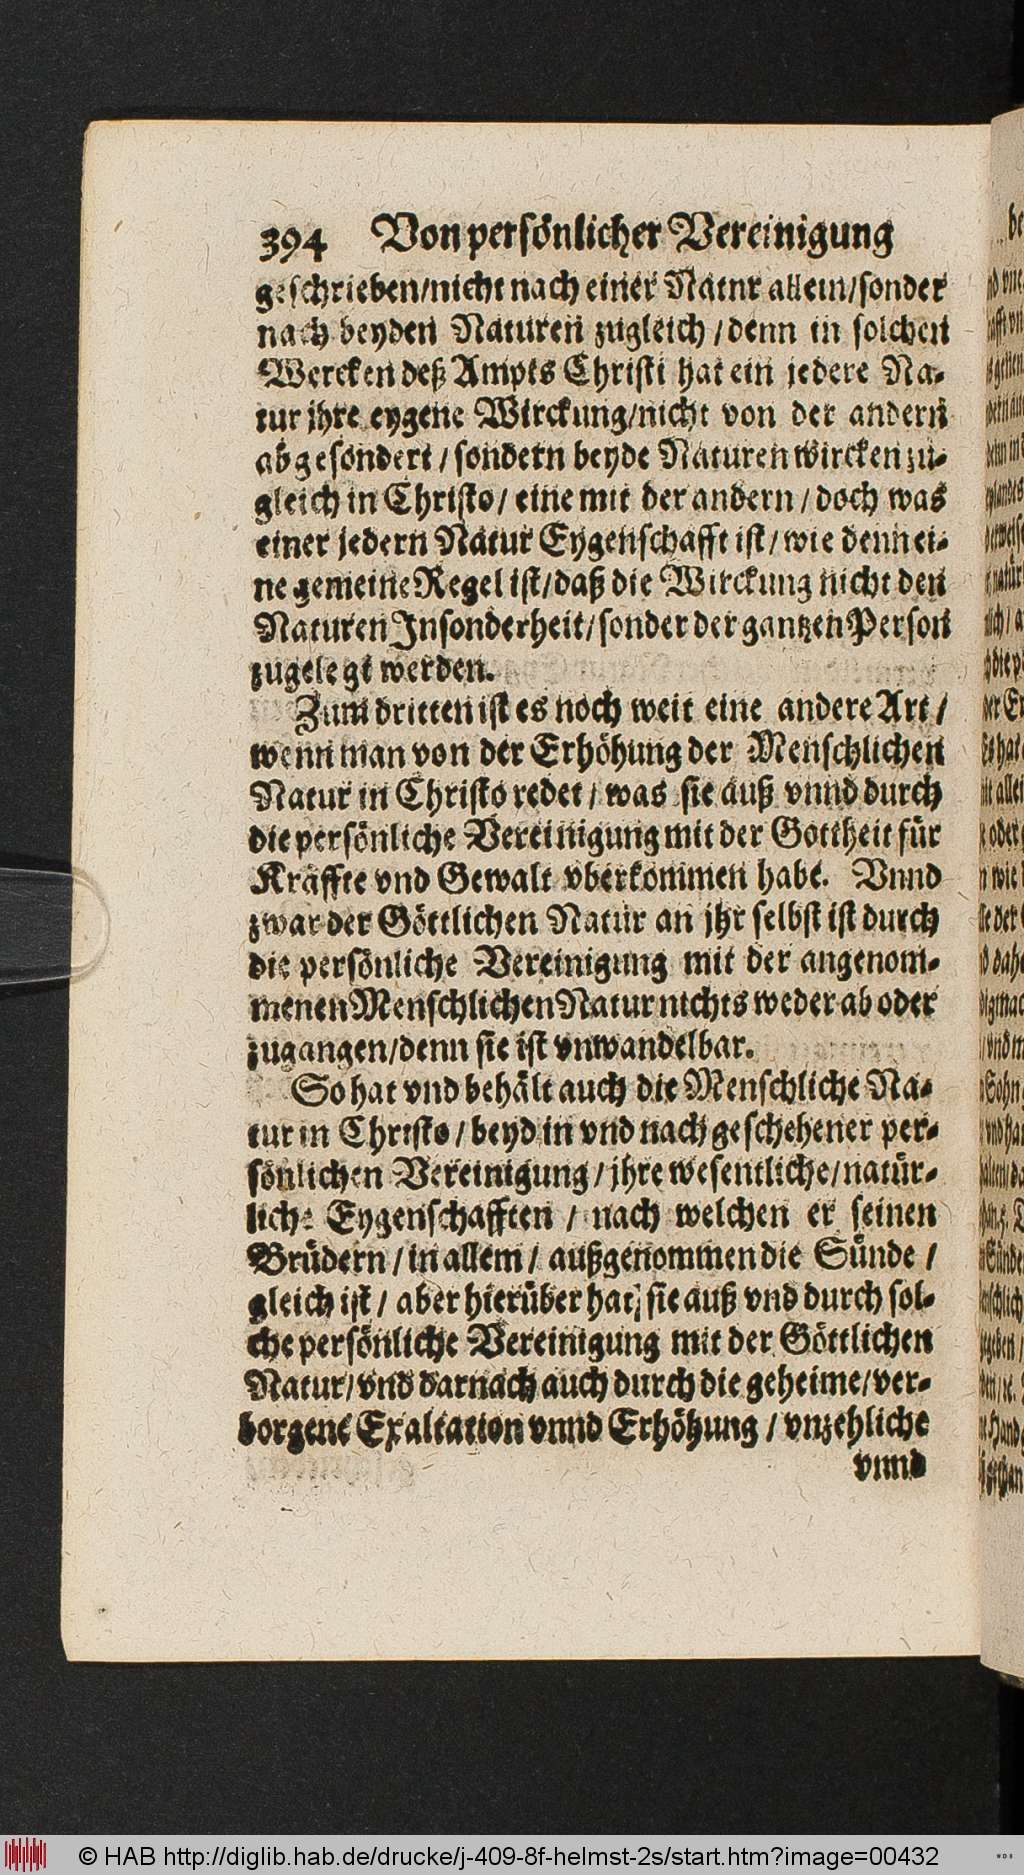 394 Von persönlicher Vereinigung
geschrieben/nicht nach einer Natnr allein/sonder
nach beyden Naturen zugleich/denn in solchen
Wercken deß Ampts Christi hat ein jedere Na-
tur jhre eygene Wirckung/nicht von der andern
abgesondert/sondern beyde Naturen wircken zu-
gleich in Christo/eine mit der andern/doch was
einer jedern Natur Eygenschafft ist/wie denn ei-
ne gemeine Regel ist/daß die Wirckung nicht den
Naturen Insonderheit/sonder der gantzen Person
zugelegt werden.
Zum dritten ist es noch weit eine andere Art/
wenn man von der Erhöhung der Menschlichen
Natur in Christo redet/was sie auß vnnd durch
die persönliche Vereinigung mit der Gottheit für
Kräffte vnd Gewalt vberkommen habe. Vnnd
zwar der Göttlichen Natur an jhr selbst ist durch
die persönliche Vereinigung mit der angenom-
menen Menschlichen Natur nichts weder ab oder
zugangen/denn sie ist vnwandelbar.
So hat vnd behält auch die Menschliche Na-
tur in Christo/beyd in vnd nach geschehener per-
sönlichen Vereinigung/jhre wesentliche/natür-
liche Eygenschafften/nach welchen er seinen
Brüdern/in allem/außgenommen die Sünde/
gleich ist/aber hierüber hat sie auß vnd durch sol-
che persönliche Vereinigung mit der Göttlichen
Natur/vnd darnach auch durch die geheime/ver-
borgene Exaltation vnnd Erhöhung/vnzehliche
vnnd
© HAB http://diglib.hab.de/drucke/j-409-8f-helmst-2s/start.htm?image=00432